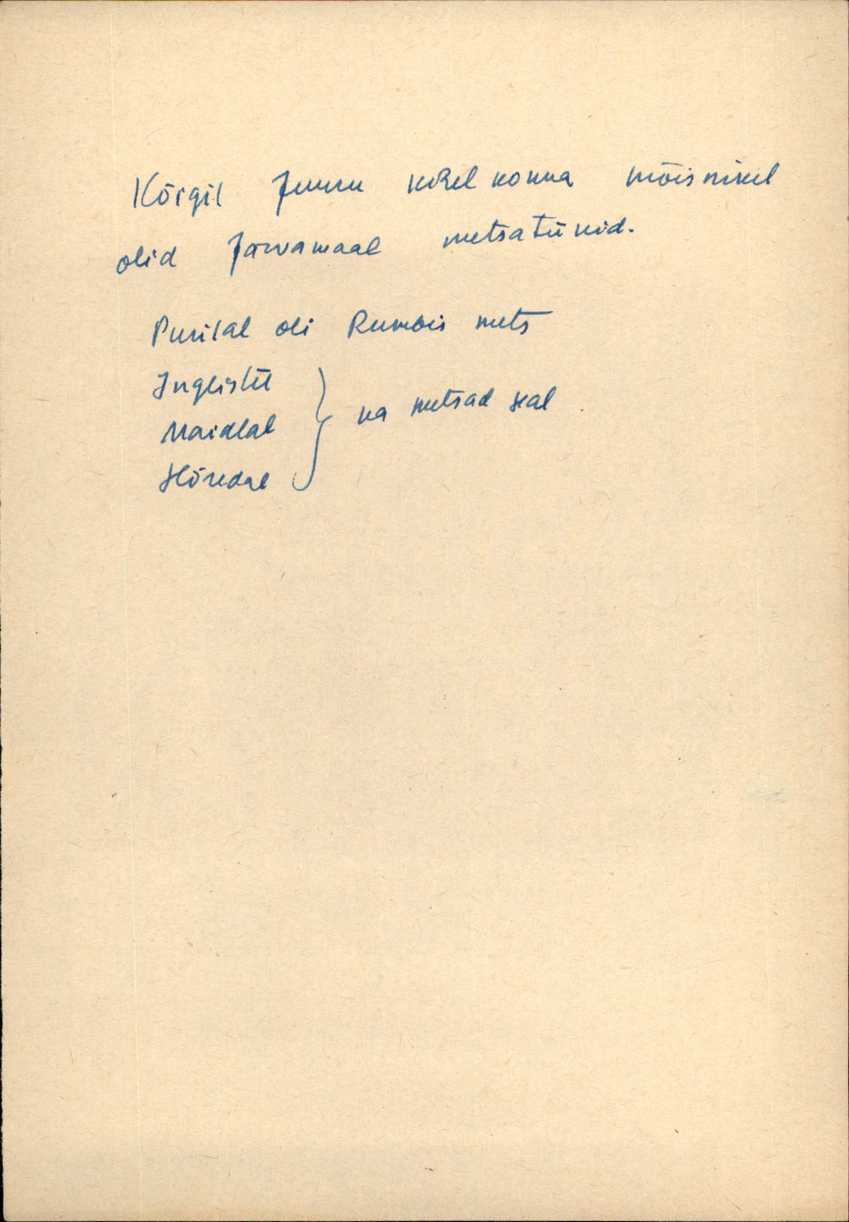 Kõigil Juuru kihelkonna mõisnikel
olid Järvamaal metsatükid.
Purilal oli Rumbis mets
Inglistel
Maidlal } ka metsad seal
Hõredal